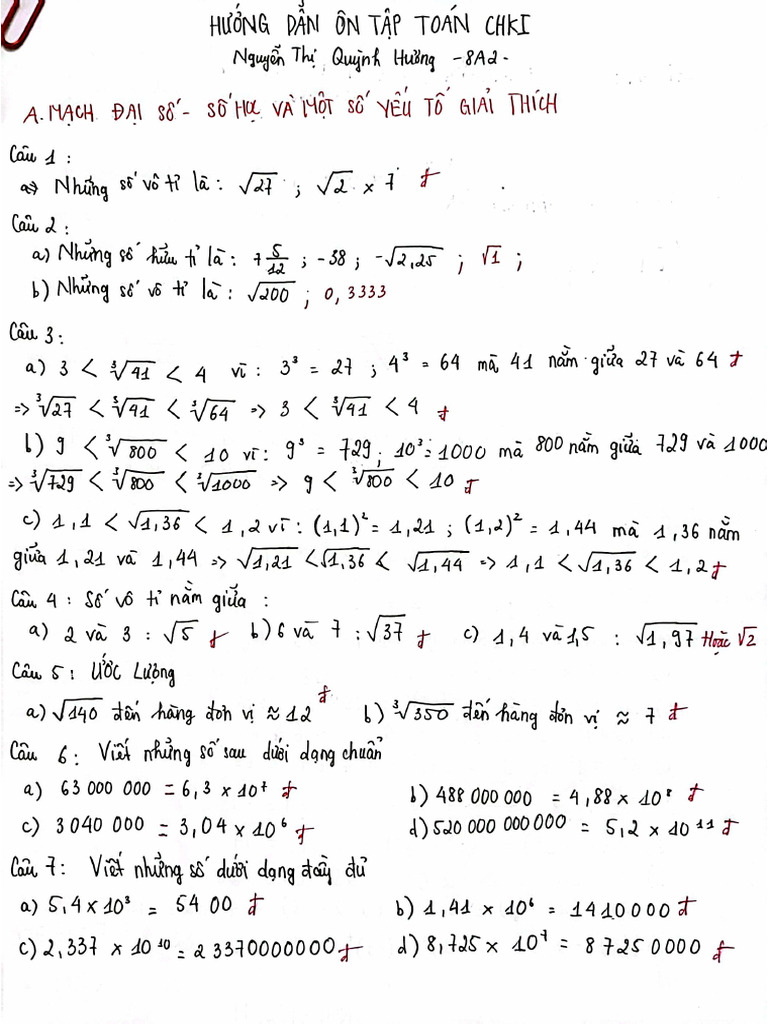 HƯỚNG DẪN ÔN TẬP TOÁN CHKI
Nguyễn Thị Quỳnh Hương -8A2-
A. MẠCH ĐẠI SỐ - SỐ HỌC VÀ MỘT SỐ YẾU TỐ GIẢI THÍCH
Câu 1 :
a) Những số vô tỉ là : √27 ; √2 × 7 đ
Câu 2 :
a) Những số hữu tỉ là : 7 5/12 ; -38 ; -√2,25 ; √1 ;
b) Những số vô tỉ là : √200 ; 0,3333
Câu 3 :
a) 3 < ∛41 < 4 vì : 3³ = 27 ; 4³ = 64 mà 41 nằm giữa 27 và 64 đ
=> ∛27 < ∛41 < ∛64 => 3 < ∛41 < 4 đ
b) 9 < ∛800 < 10 vì : 9³ = 729 ; 10³ = 1000 mà 800 nằm giữa 729 và 1000
=> ∛729 < ∛800 < ∛1000 => 9 < ∛800 < 10 đ
c) 1,1 < √1,36 < 1,2 vì : (1,1)² = 1,21 ; (1,2)² = 1,44 mà 1,36 nằm
giữa 1,21 và 1,44 => √1,21 < √1,36 < √1,44 => 1,1 < √1,36 < 1,2 đ
Câu 4 : Số vô tỉ nằm giữa :
a) 2 và 3 : √5 đ b) 6 và 7 : √37 đ c) 1,4 và 1,5 : √1,97 Hoặc √2
Câu 5 : Ước Lượng
a) √140 đến hàng đơn vị ≈ 12 đ b) ∛350 đến hàng đơn vị ≈ 7 đ
Câu 6 : Viết những số sau dưới dạng chuẩn
a) 63 000 000 = 6,3 × 10⁷ đ b) 488 000 000 = 4,88 × 10⁸ đ
c) 3 040 000 = 3,04 × 10⁶ đ d) 520 000 000 000 = 5,2 × 10¹¹ đ
Câu 7 : Viết những số dưới dạng đầy đủ
a) 5,4 × 10³ = 54 00 đ b) 1,41 × 10⁶ = 1410000 đ
c) 2,337 × 10¹⁰ = 23370000000 đ d) 8,725 × 10⁷ = 8 725 0000 đ